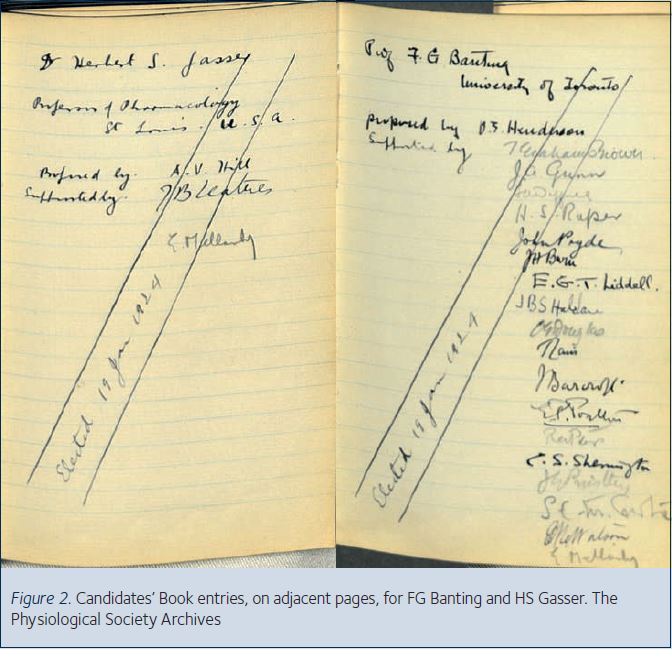 Dr Herbert S. Gasser
Professor of Pharmacology
St Louis. U.S.A.
Proposed by. A. V. Hill
Supported by. JB Leathes
E. Mellanby
Elected 19 Jan 1924
Prof F. G. Banting
University of Toronto
proposed by V.E. Henderson
Supported by T Graham Brown
J.A. Gunn
H. S. Raper
John Pryde
JH Burn
E. G. T. Liddell.
JBS Haldane
CG Douglas
J Barcroft
E.P. Poulton
C. S. Sherrington
JG Priestley
Watson
E Mellanby
Elected 19 Jan 1924
Figure 2. Candidates' Book entries, on adjacent pages, for FG Banting and HS Gasser. The
Physiological Society Archives